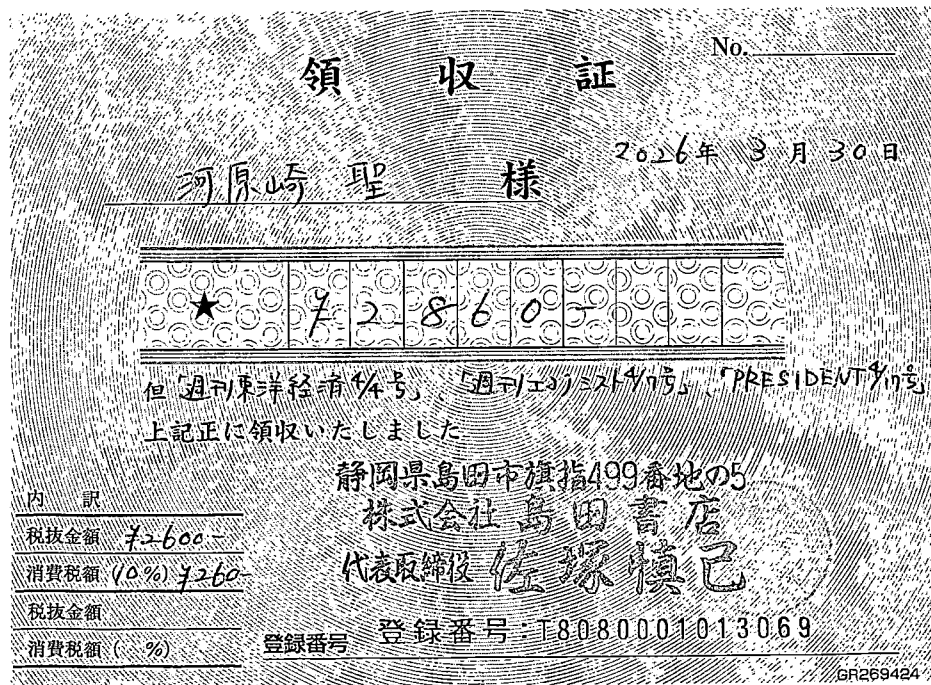 No.
領収証
2026年 3月30日
河原崎 聖 様
★ ¥2860-
但「週刊東洋経済4/4号」、「週刊エコノミスト4/7号」、「PRESIDENT4/17号」
上記正に領収いたしました
静岡県島田市旗指499番地の5
株式会社 島田書店
代表取締役 佐塚慎己
内 訳
税抜金額 ¥2600-
消費税額 (10%) ¥260-
税抜金額
消費税額 ( %)
登録番号 登録番号:T8080001013069
GR269424